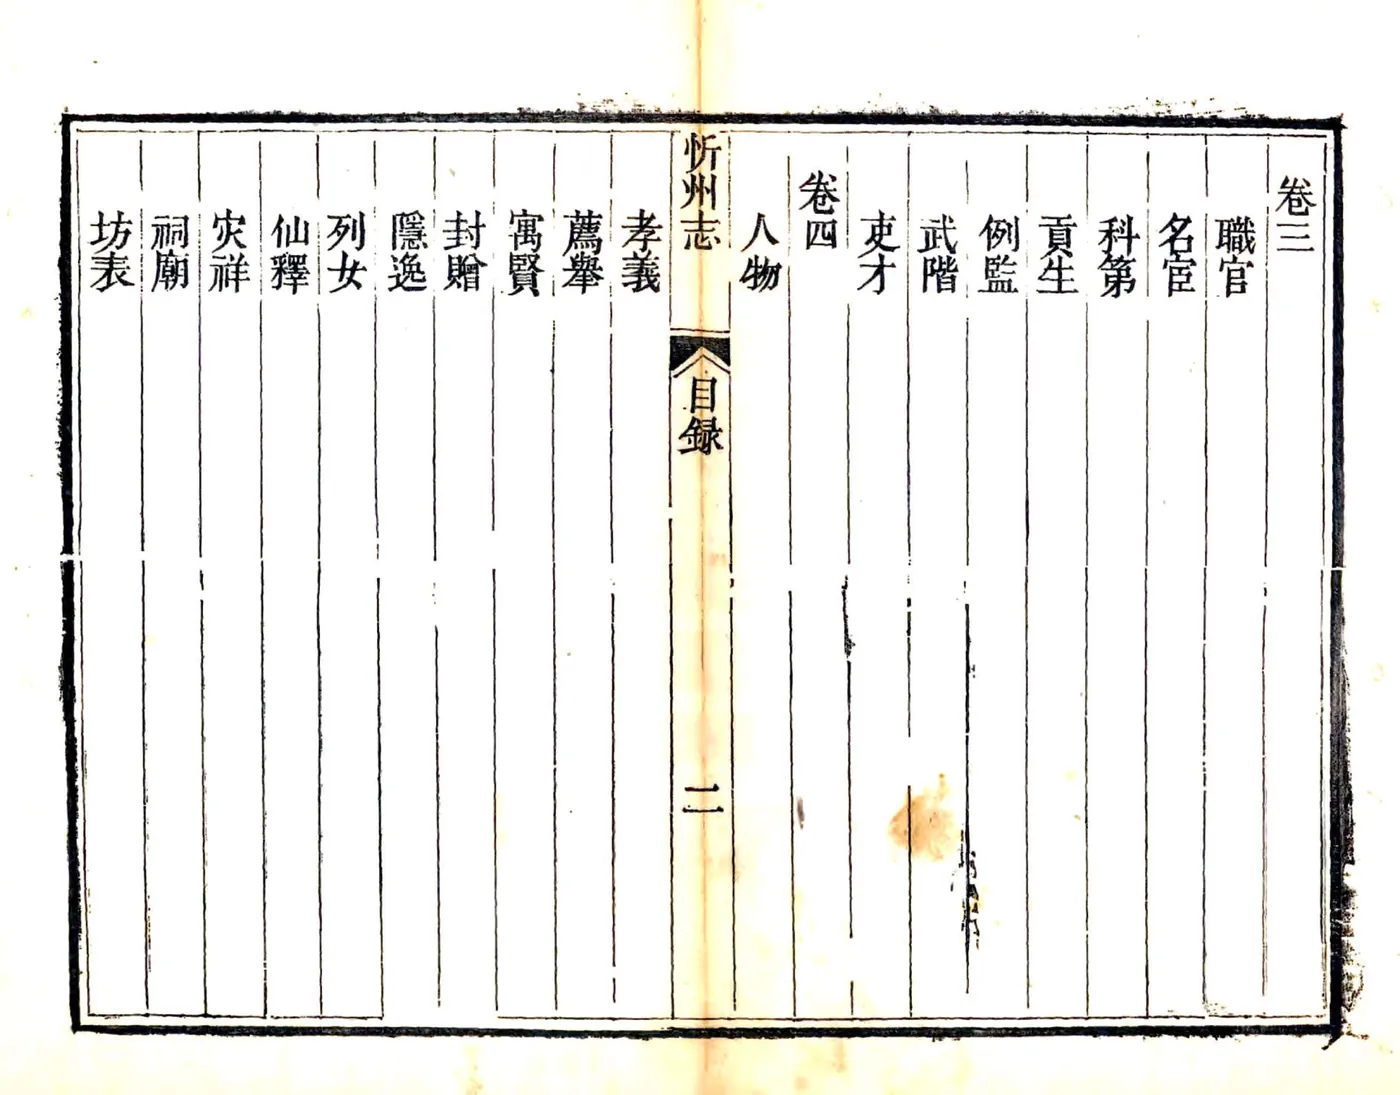 卷三
職官
名宦
科第
貢生
例監
武階
吏才
卷四
人物
忻州志
目録
二
孝義
薦舉
寓賢
封贈
隱逸
列女
仙釋
灾祥
祠廟
坊表